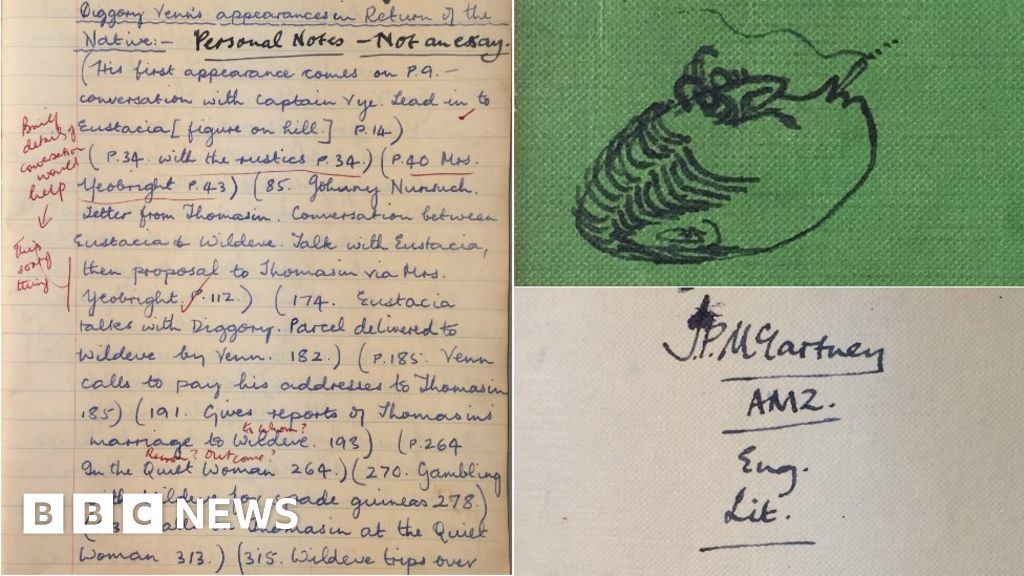 Diggory Venn's appearances in Return of the
Native:- Personal Notes - Not an essay.
(His first appearance comes on P.9. -
conversation with Captain Vye. Lead in to
Eustacia [figure on hill.] P.14)
(P.34. with the rustics P.34.) (P.40 Mrs.
Yeobright P.43) (85. Johnny Nunsuch.
Letter from Thomasin. Conversation between
Eustacia & Wildeve. Talk with Eustacia,
then proposal to Thomasin via Mrs.
Yeobright. P.112.) (174. Eustacia
talks with Diggory. Parcel delivered to
Wildeve by Venn. 182.) (P.185. Venn
calls to pay his addresses to Thomasin
185) (191. Gives reports of Thomasin's
to whom?
marriage to Wildeve. 193) (P.264
Reason? Outcome?
In the Quiet Woman 264.) (270. Gambling
with Wildeve for spade guineas 278.)
Thomasin at the Quiet
Woman 313.) (315. Wildeve trips over
Brief
details of
conversation
would
help
This
sort of
thing
BBC NEWS
J.P. McCartney
AM2.
Eng.
Lit.